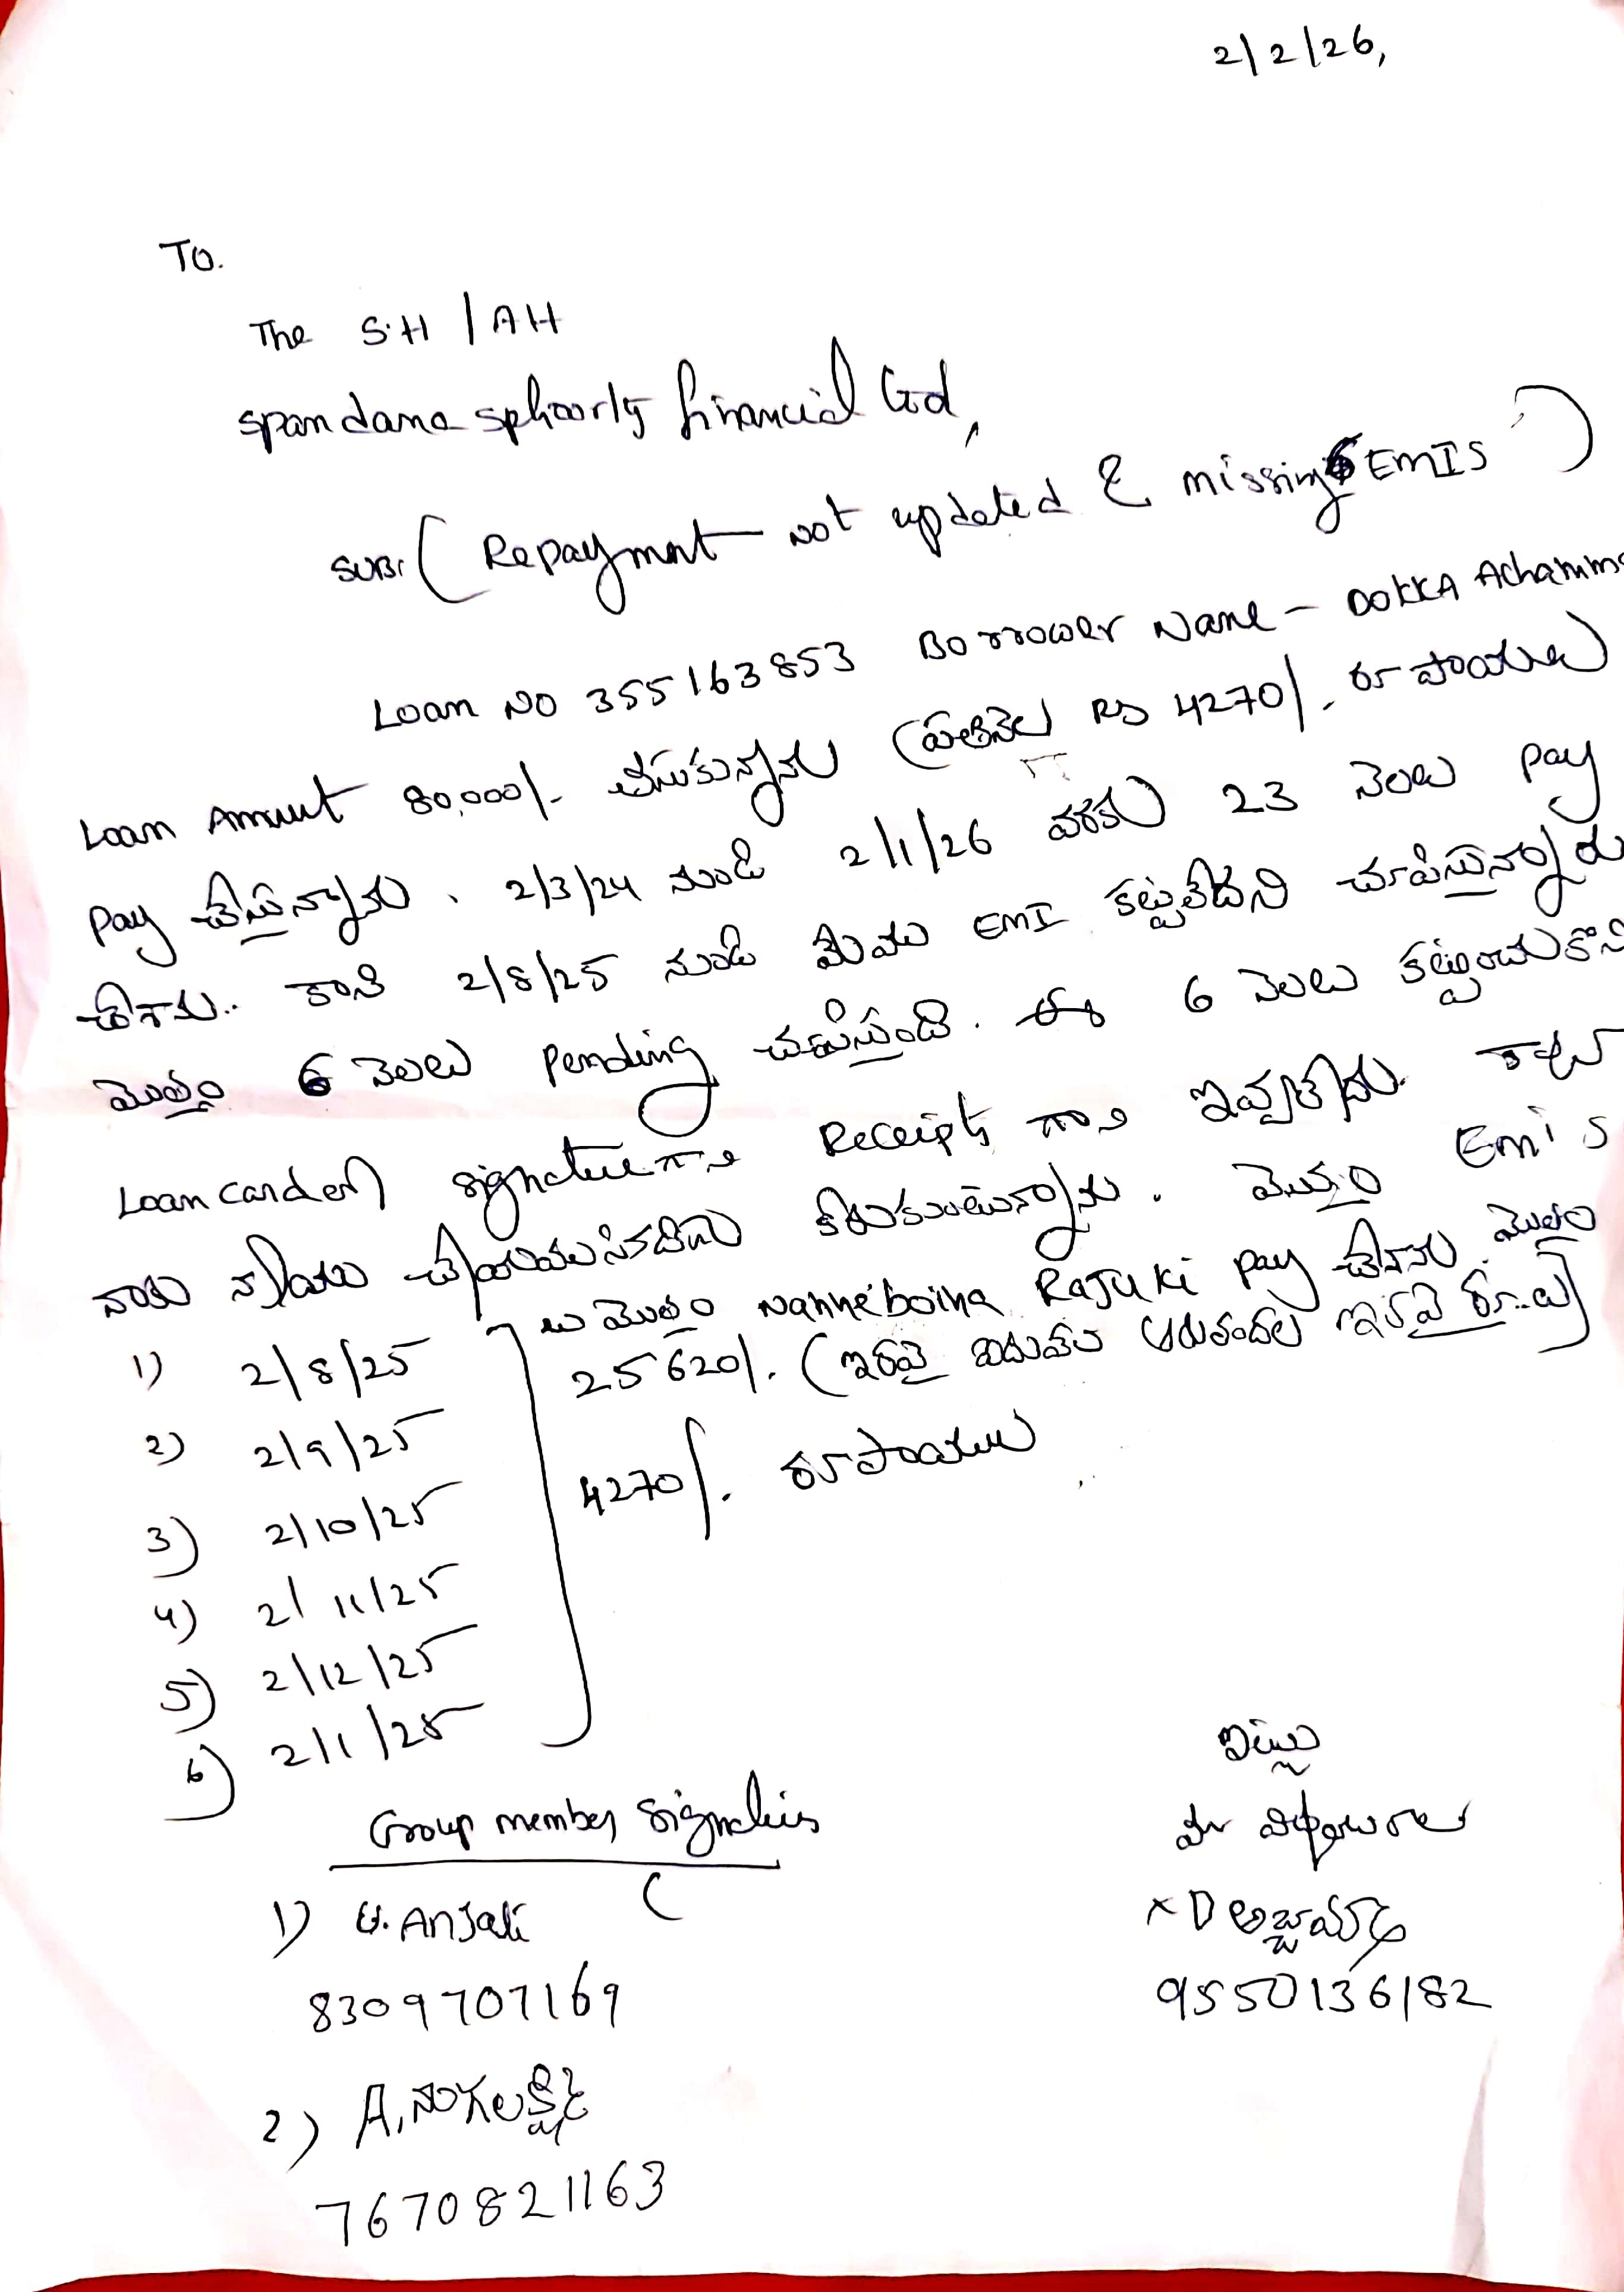 2/2/26,
TO.
The S.H / AH
spandana sphoorty financial Ltd,
SUB: ( Repayment not updated & missing EMIS )
Loan NO 355163853 Borrower Name - DOKKA Achamma
Loan Amount 80,000/- తీసుకున్నాను (ప్రతినెల RS 4270/. రూపాయలు)
pay చేస్తున్నాను. 2/3/24 నుండి 2/1/26 వరకు 23 నెలలు pay
చేశాను.. కాని 2/8/25 నుండి మేము EMI కట్టలేదని చూపిస్తున్నారు
మొత్తం 6 నెలలు pending చూపిస్తుంది. ఈ 6 నెలలు కట్టించుకొని
Loan card లో signature గాని Receipts గాని ఇవ్వలేదు.
నాకు న్యాయం చేయవలసినదిగా కోరుకుంటున్నాను. మొత్తం Emi s
ను మొత్తం Nanneboina RAJU Ki pay చేశాను. మొత్తం
1) 2/8/25
25620/. (ఇరవై ఐదువేల ఆరువందల ఇరవై రూ..లు)
2) 2/9/25
4270/. రూపాయలు
3) 2/10/25
4) 2/11/25
5) 2/12/25
6) 2/1/25
ఇట్లు
Group members Signatures
మీ విధేయురాలు
1) U. Anjali
x D అచ్చమ్మ
8309707169
9550136182
2) A. నాగలక్ష్మి
7670821163